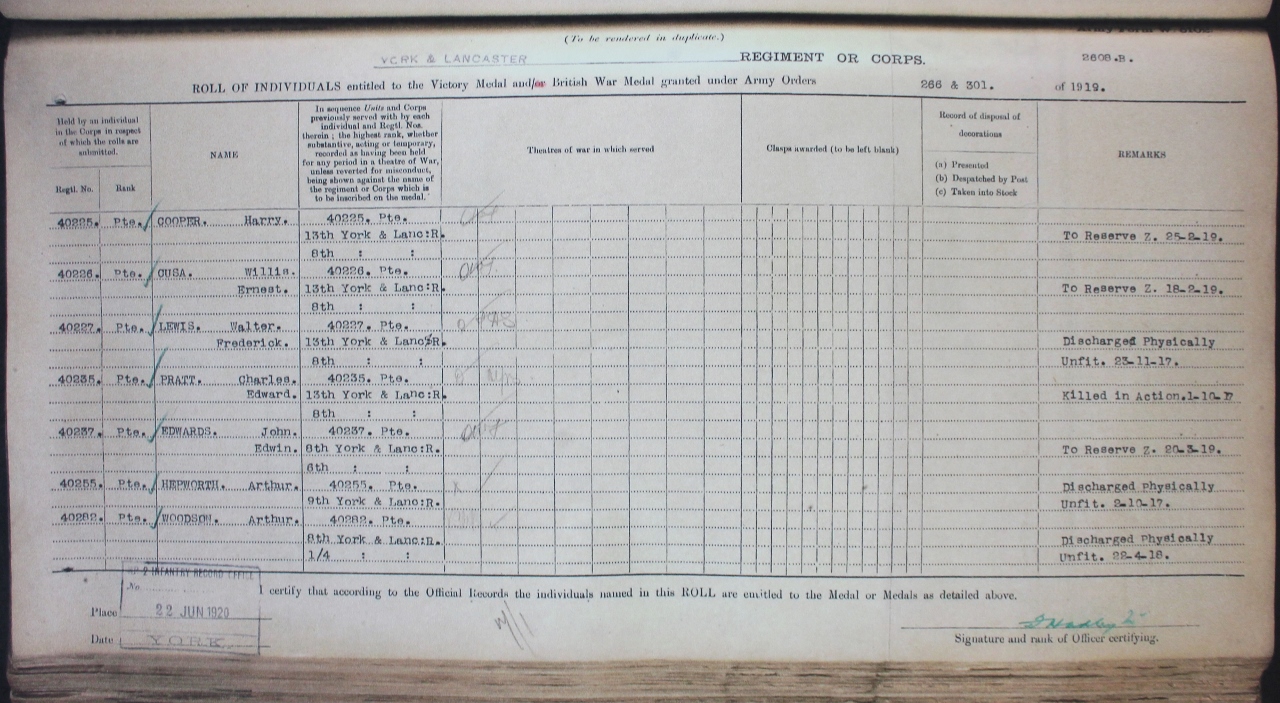 (To be rendered in duplicate.)
YORK & LANCASTER REGIMENT OR CORPS. 2608.B.
ROLL OF INDIVIDUALS entitled to the Victory Medal and/or British War Medal granted under Army Orders 266 & 301. of 1919.
Held by an individual
in the Corps in respect
of which the rolls are
submitted.
Regtl. No. Rank
NAME
In sequence Units and Corps
previously served with by each
individual and Regtl. Nos.
therein; the highest rank, whether
substantive, acting or temporary,
recorded as having been held
for any period in a theatre of War,
unless reverted for misconduct,
being shown against the name of
the regiment or Corps which is
to be inscribed on the medal.
Theatres of war in which served
Clasps awarded (to be left blank)
Record of disposal of
decorations
(a) Presented
(b) Despatched by Post
(c) Taken into Stock
REMARKS
40225. Pte. COOPER. Harry. 40225. Pte.
13th York & Lanc:R. To Reserve Z. 25-2-19.
8th : :
40226. Pte. CUSA. Willis. 40226. Pte.
Ernest. 13th York & Lanc:R. To Reserve Z. 18-2-19.
8th : :
40227. Pte. LEWIS. Walter. 40227. Pte.
Frederick. 13th York & Lanc:R. Discharged Physically
8th : : Unfit. 23-11-17.
40235. Pte. PRATT. Charles. 40235. Pte.
Edward. 13th York & Lanc:R. Killed in Action.1-10-17
8th : :
40237. Pte. EDWARDS. John. 40237. Pte.
Edwin. 8th York & Lanc:R. To Reserve Z. 20-3-19.
6th : :
40255. Pte. HEPWORTH. Arthur. 40255. Pte. Discharged Physically
9th York & Lanc:R. Unfit. 2-10-17.
40282. Pte. WOODSON. Arthur. 40282. Pte.
8th York & Lanc:R. Discharged Physically
1/4 : : Unfit. 22-4-18.
INFANTRY RECORD OFFICE
No.
I certify that according to the Official Records the individuals named in this ROLL are entitled to the Medal or Medals as detailed above.
Place 22 JUN 1920
Date YORK
Signature and rank of Officer certifying.